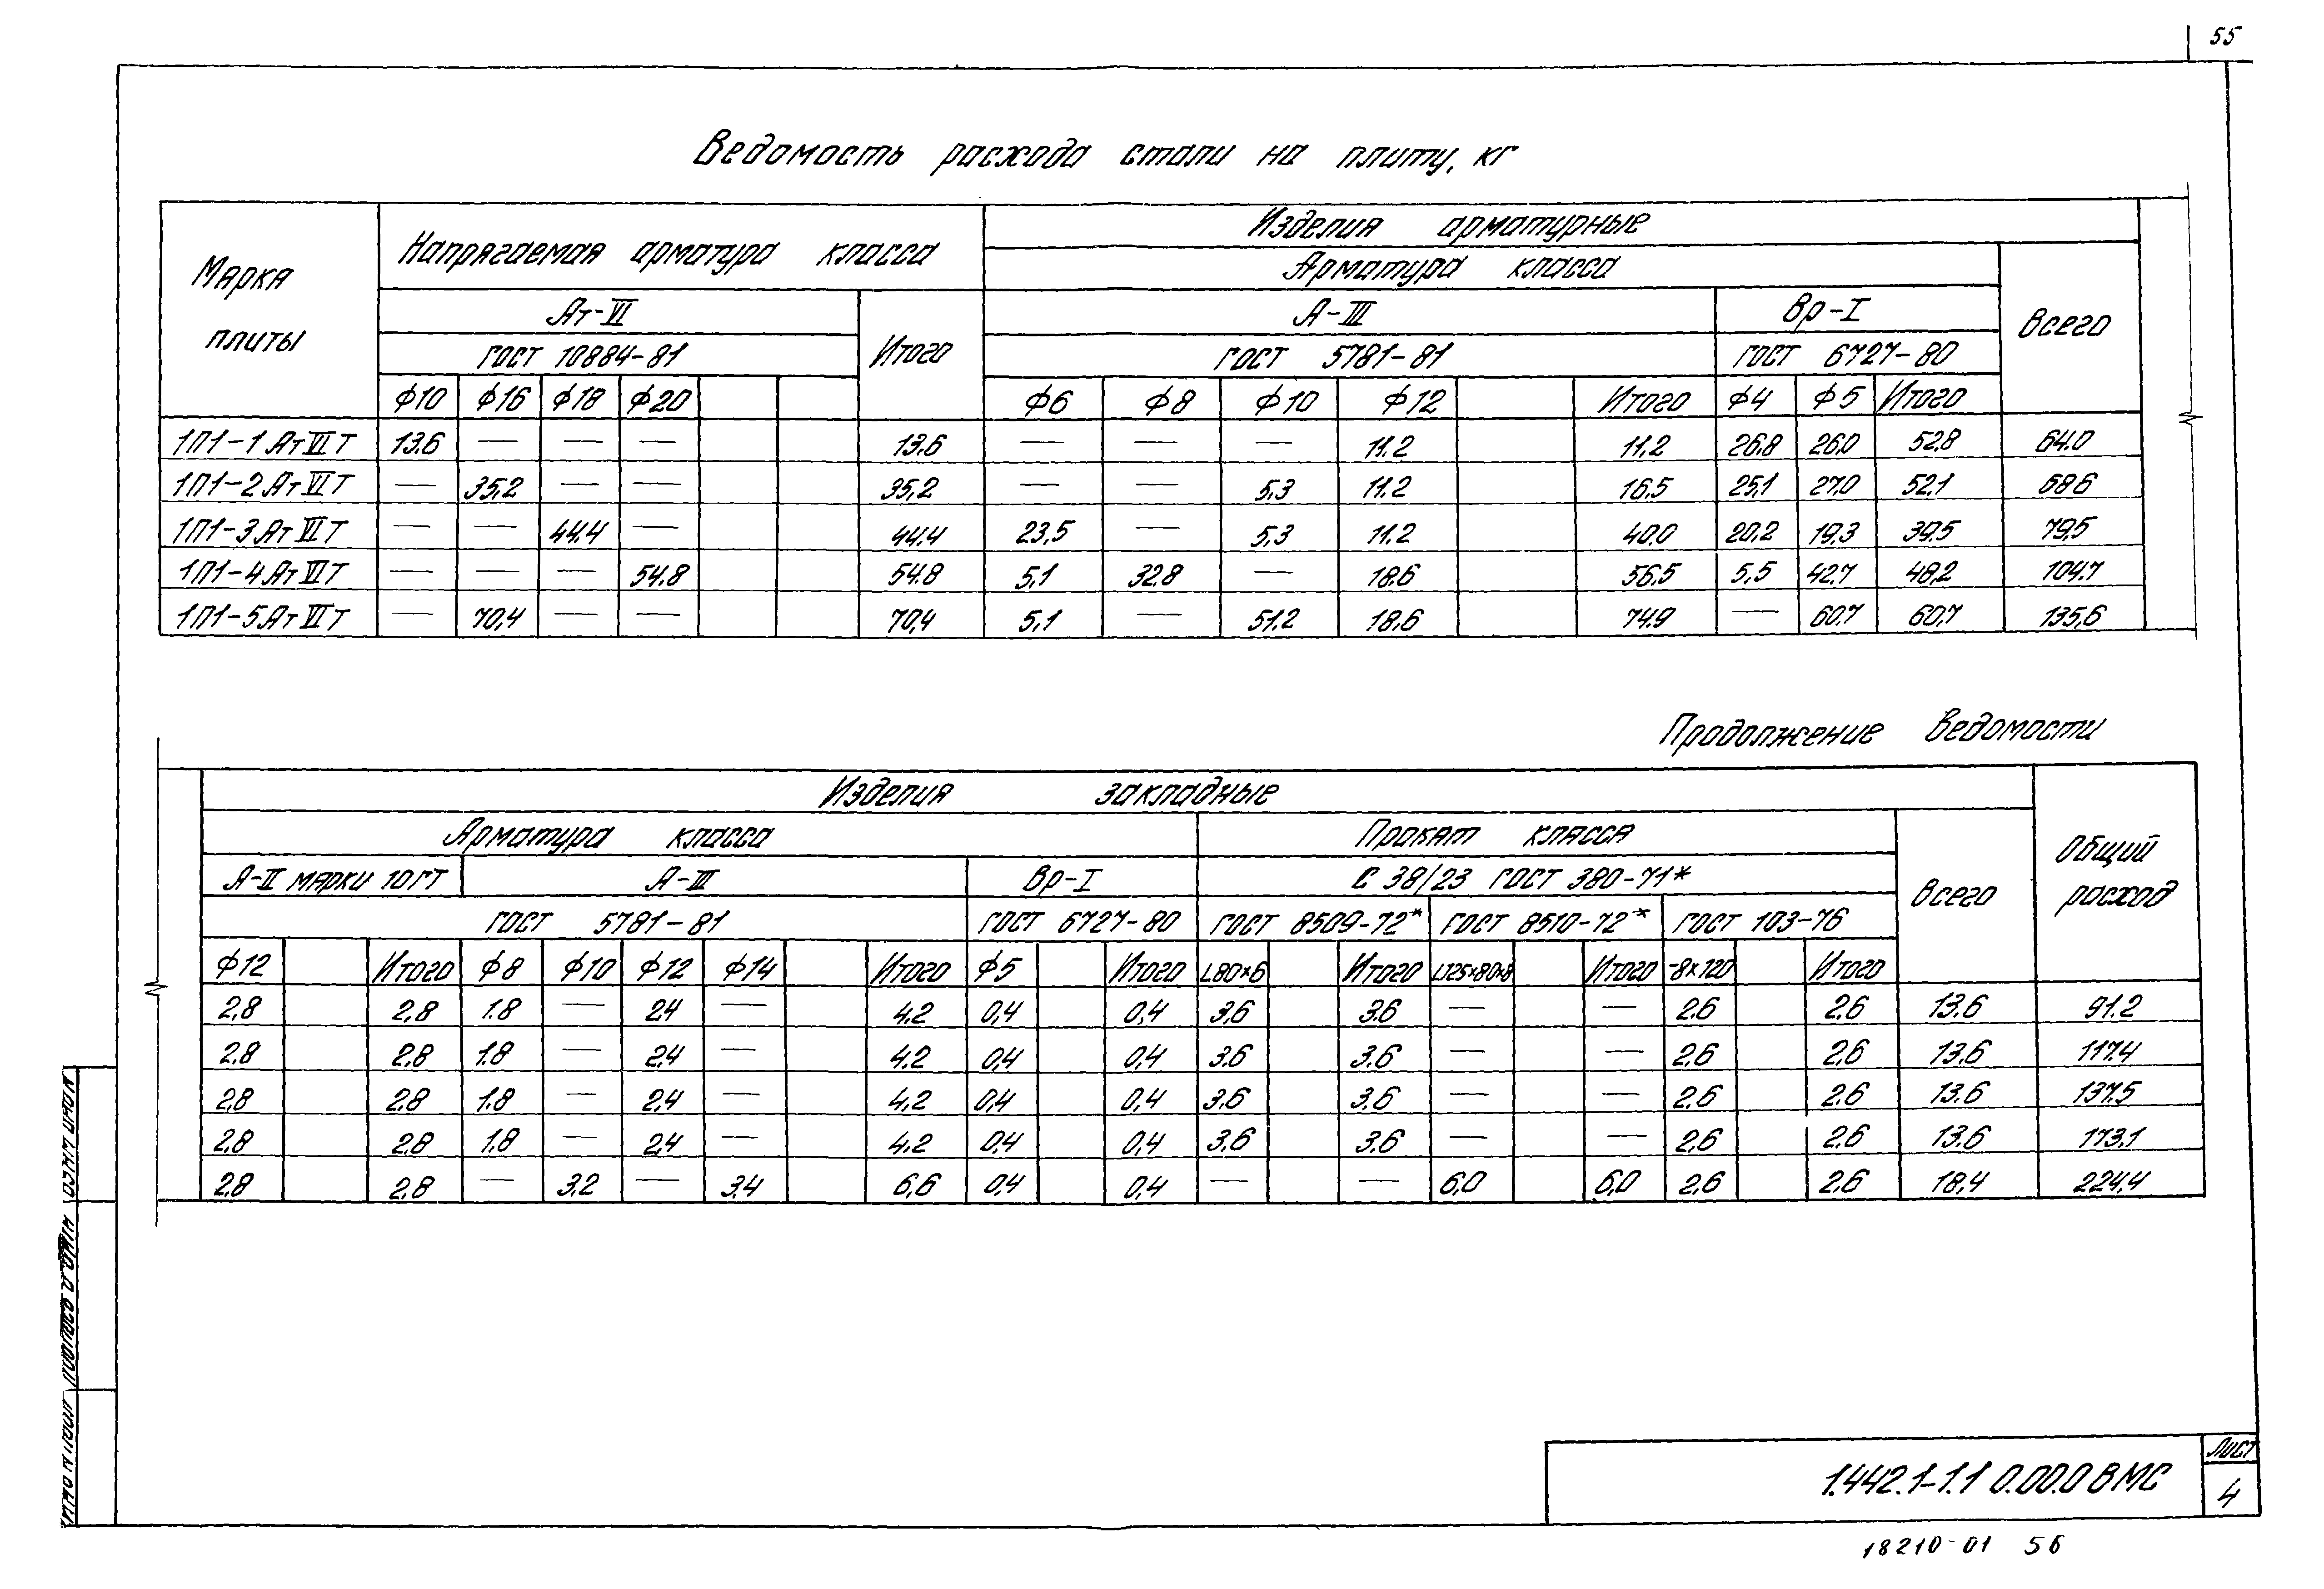 55
Ведомость расхода стали на плиту, кг
Марка плиты
Напрягаемая арматура класса
Изделия арматурные
Арматура класса
Ат-VI
Итого
А-III
Вр-I
Всего
ГОСТ 10884-81
ГОСТ 5781-81
ГОСТ 6727-80
ф10 ф16 ф18 ф20 ф6 ф8 ф10 ф12 Итого ф4 ф5 Итого
1П1-1АтVIТ 13.6 — — — 13,6 — — — 11.2 11,2 26,8 26,0 52,8 64.0
1П1-2АтVIТ — 35,2 — — 35,2 — — 5,3 11.2 16.5 25,1 27,0 52,1 68.6
1П1-3АтVIТ — — 44,4 — 44,4 23,5 — 5,3 11.2 40.0 20,2 19.3 39,5 79,5
1П1-4АтVIТ — — — 54,8 54.8 5,1 32.8 — 18.6 56.5 5,5 42.7 48,2 104.7
1П1-5АтVIТ — 70,4 — — 70,4 5,1 — 51.2 18,6 74.9 — 60.7 60,7 135,6
Продолжение ведомости
Изделия закладные
Арматура класса
Прокат класса
Всего
Общий расход
А-II марки 10ГТ
А-III
Вр-I
С 38/23 ГОСТ 380-71*
ГОСТ 5781-81
ГОСТ 6727-80
ГОСТ 8509-72*
ГОСТ 8510-72*
ГОСТ 103-76
ф12 Итого ф8 ф10 ф12 ф14 Итого ф5 Итого L80×6 Итого L125×80×8 Итого -8×120 Итого
2,8 2,8 1.8 — 2,4 — 4.2 0,4 0,4 3,6 3.6 — — 2.6 2.6 13.6 91.2
2,8 2,8 1.8 — 2,4 — 4.2 0,4 0,4 3.6 3.6 — — 2,6 2,6 13,6 117.4
2,8 2,8 1.8 — 2,4 — 4,2 0,4 0,4 3.6 3.6 — — 2,6 2,6 13.6 137.5
2,8 2,8 1.8 — 2,4 — 4,2 0,4 0,4 3,6 3.6 — — 2,6 2,6 13.6 173.1
2,8 2,8 — 3,2 — 3,4 6,6 0,4 0,4 — — 6,0 6,0 2,6 2,6 18,4 224,4
1.442.1-1.1 0.00.0ВМС
Лист
4
18210-01 56